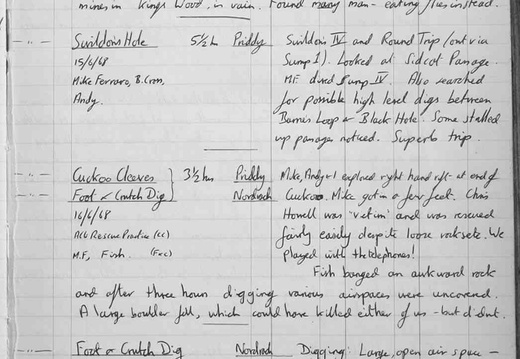 mines in Kings Wood, in vain. Found many man-eating flies instead.
Swildons Hole 5½ hrs Priddy Swildons IV and Round Trip (out via
15/6/68 Sump I). Looked at Sidcot Passage.
Mike Ferraro, B. Cross, MF dived Sump IV. Also searched
Andy. for possible high level digs between
Barnes Loop & Black Hole. Some stalled
up passages noticed. Superb trip.
Cuckoo Cleeves 3½ hrs Priddy Mike, Andy & I explored right hand rift at end of
Foot & Crutch Dig Nordrach Cuckoo. Mike got in a few feet. Chris
16/6/68 Howell was 'victim' and was rescued
Rescue Practice (CC) fairly easily despite loose rocks etc. We
M.F, Fish. played with the telephones!
Fish banged an awkward rock
and after three hours digging various airspaces were uncovered.
A large boulder fell, which could have killed either of us - but didnt.
Foot & Crutch Dig Nordrach Digging. Large, open air space -